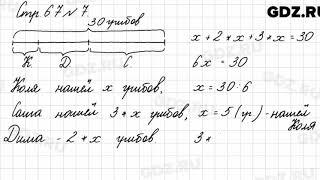 GDZ.RU
Стр 67 № 7
30 грибов
К. Д С
Коля нашёл x грибов,
Саша нашёл 3*x грибов,
Дима - 2*x грибов.
x + 2*x + 3*x = 30
6x = 30
x = 30:6
x = 5 (гр) - нашёл Коля
3*